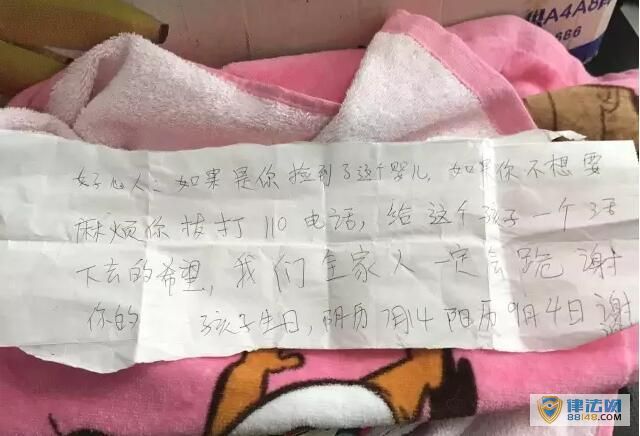 好心人：如果是你捡到了这个婴儿，如果你不想要
麻烦你拔打110电话，给这个孩子一个活
下去的希望，我们全家人一定会跪谢
你的 孩子生日，阴历7月14 阳历9月4日 谢谢
A4A8
686
律法网
88148.com